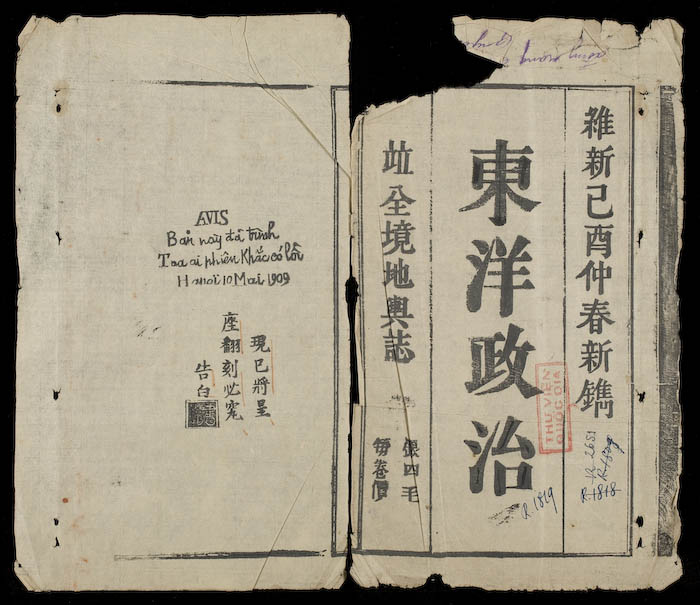 維新己酉仲春新鐫
東洋政治
竝全境地輿誌
銀四毛
每卷價
THƯ VIỆN
QUỐC GIA
R.1819
R.1818
AVIS
Bản này đã trình
Toa ai phiên Khắc có lỗi
Hanoi 10 Mai 1909
現已將呈
座翻刻必究
告白